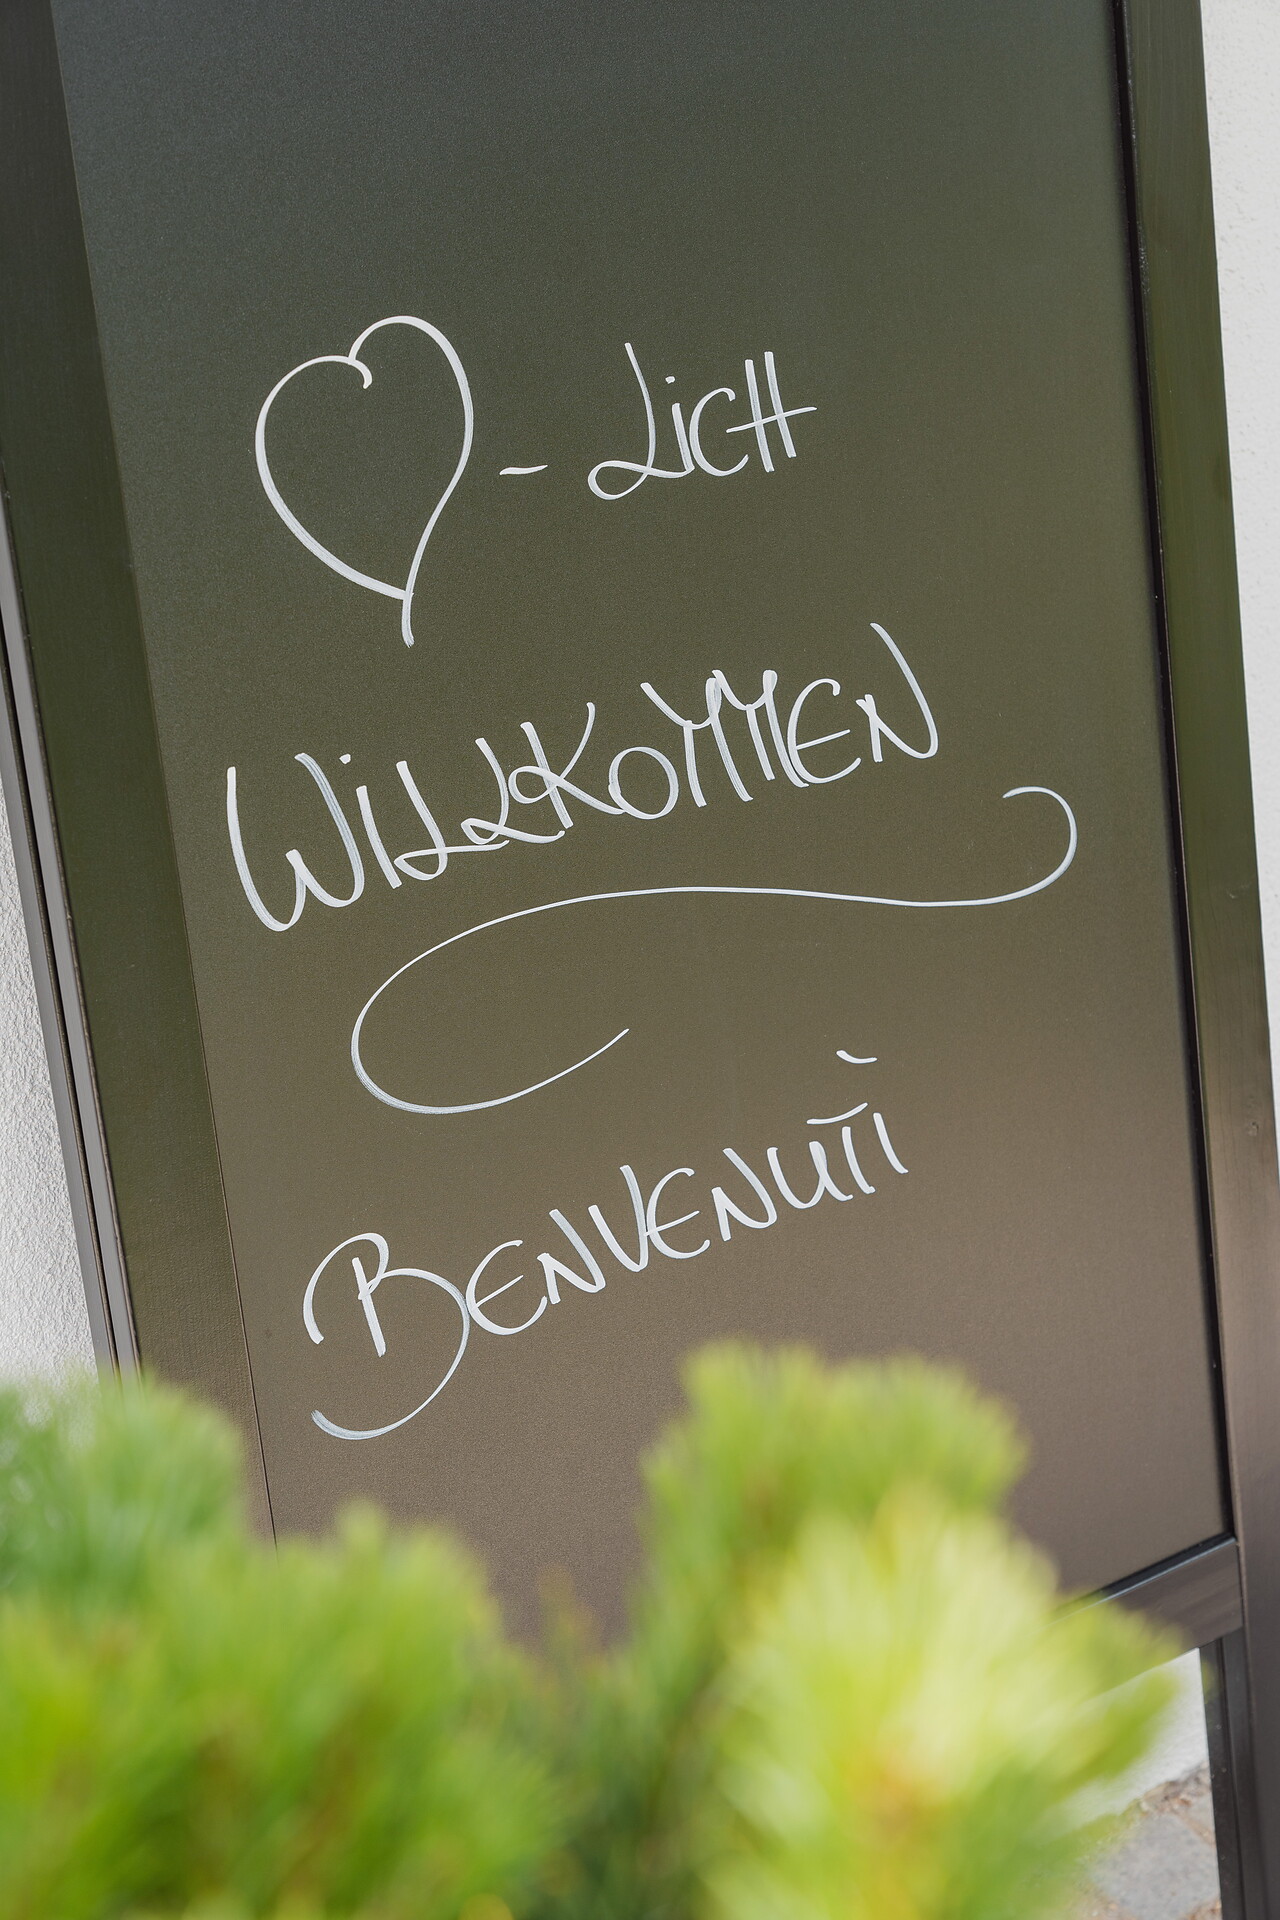 ♡ - LiCH
WiLLKOMMEN
BENVENUTI